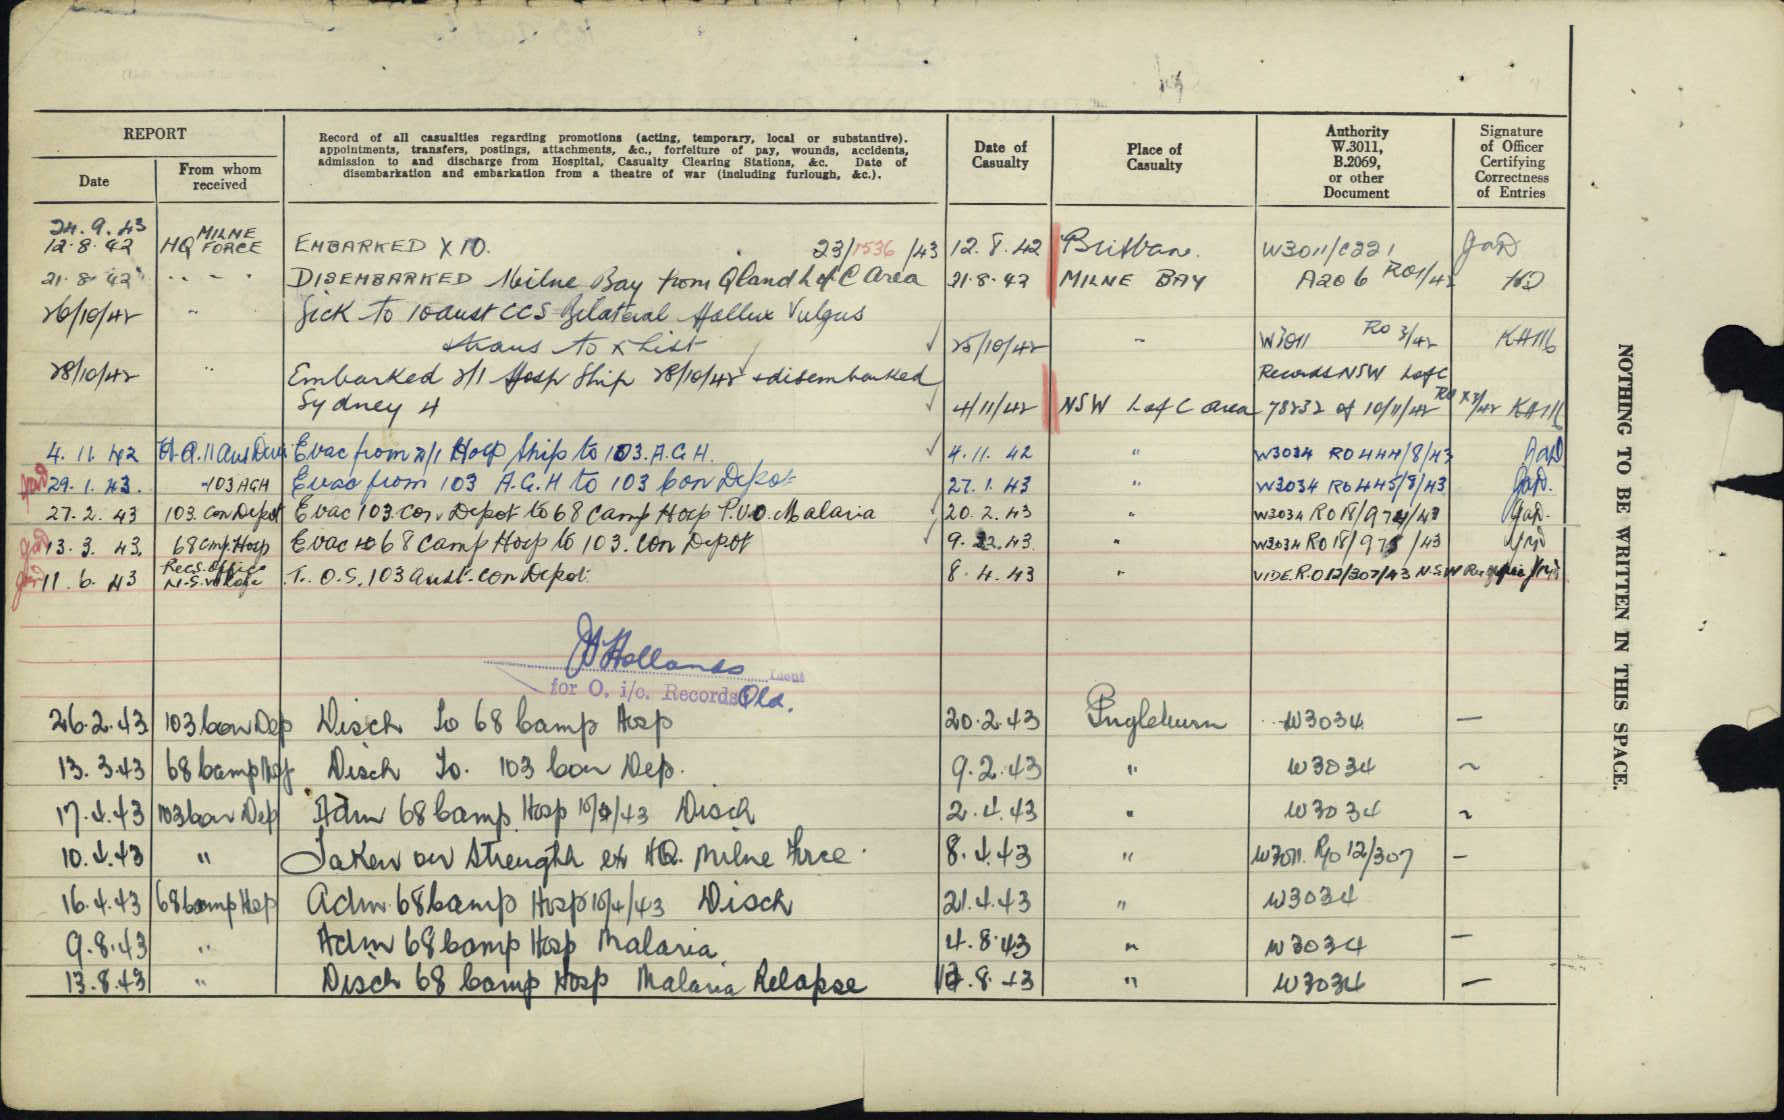 REPORT
Date
From whom received
Record of all casualties regarding promotions (acting, temporary, local or substantive).
appointments, transfers, postings, attachments, &c., forfeiture of pay, wounds, accidents,
admission to and discharge from Hospital, Casualty Clearing Stations, &c. Date of
disembarkation and embarkation from a theatre of war (including furlough, &c.).
Date of Casualty
Place of Casualty
Authority W.3011, B.2069, or other Document
Signature of Officer Certifying Correctness of Entries
24.9.43
12.8.42 HQ MILNE FORCE EMBARKED X 10. 23/1536/43 12.8.42 Brisbane. W3011/C221
21.8.42 " - " DISEMBARKED Milne Bay from Qland L of C Area 21.8.42 MILNE BAY A206 RO1/42
26/10/42 " Sick to 10 Aust CCS Bilateral Hallux Vulgus
trans to x list 25/10/42 " W3011 RO 3/42
28/10/42 " Embarked 2/1 Hosp Ship 28/10/42 & disembarked Records NSW L of C
Sydney 4 4/11/42 NSW L of C area 78232 of 10/11/42
4.11.42 Evac from 2/1 Hosp Ship to 103. A.G.H. 4.11.42 " W3034 RO 444/8/43
29.1.43. 103 AGH Evac from 103 A.G.H to 103 Con Depot 27.1.43 " W3034 RO 445/8/43
27.2.43 103. Con Depot Evac 103. Con. Depot to 68 Camp Hosp P.U.O. Malaria 20.2.43 " W3034 RO 18/974/43
13.3.43. 68 Cmp Hosp Evac to 68 Camp Hosp to 103. Con Depot 9.2.43. " W3034 RO 18/975/43
11.6.43 Recs. Office N.S.W L of C T.O.S. 103 Aust. Con Depot. 8.4.43 " VIDE. R.O 12/307/43 N.S.W
J Hollands Lieut
for O. i/c. Records Qld.
26.2.43 103 Con Dep Disch To 68 Camp Hosp 20.2.43 Ingleburn W3034 —
13.3.43 68 Camp Hosp Disch To. 103 Con Dep. 9.2.43 " W3034 ~
17.4.43 103 Con Dep Adm 68 Camp Hosp Disch 2.4.43 " W3034 ~
10.4.43 " Taken on Strength ex HQ. Milne Force. 8.4.43 " W3011. R/O 12/307 —
16.4.43 68 Camp Hosp Adm 68 Camp Hosp 15/4/43 Disch 21.4.43 " W3034
9.8.43 " Adm 68 Camp Hosp Malaria. 4.8.43 " W3034 —
13.8.43 " Disch 68 Camp Hosp Malaria Relapse .8.43 " W3034 —
NOTHING TO BE WRITTEN IN THIS SPACE.